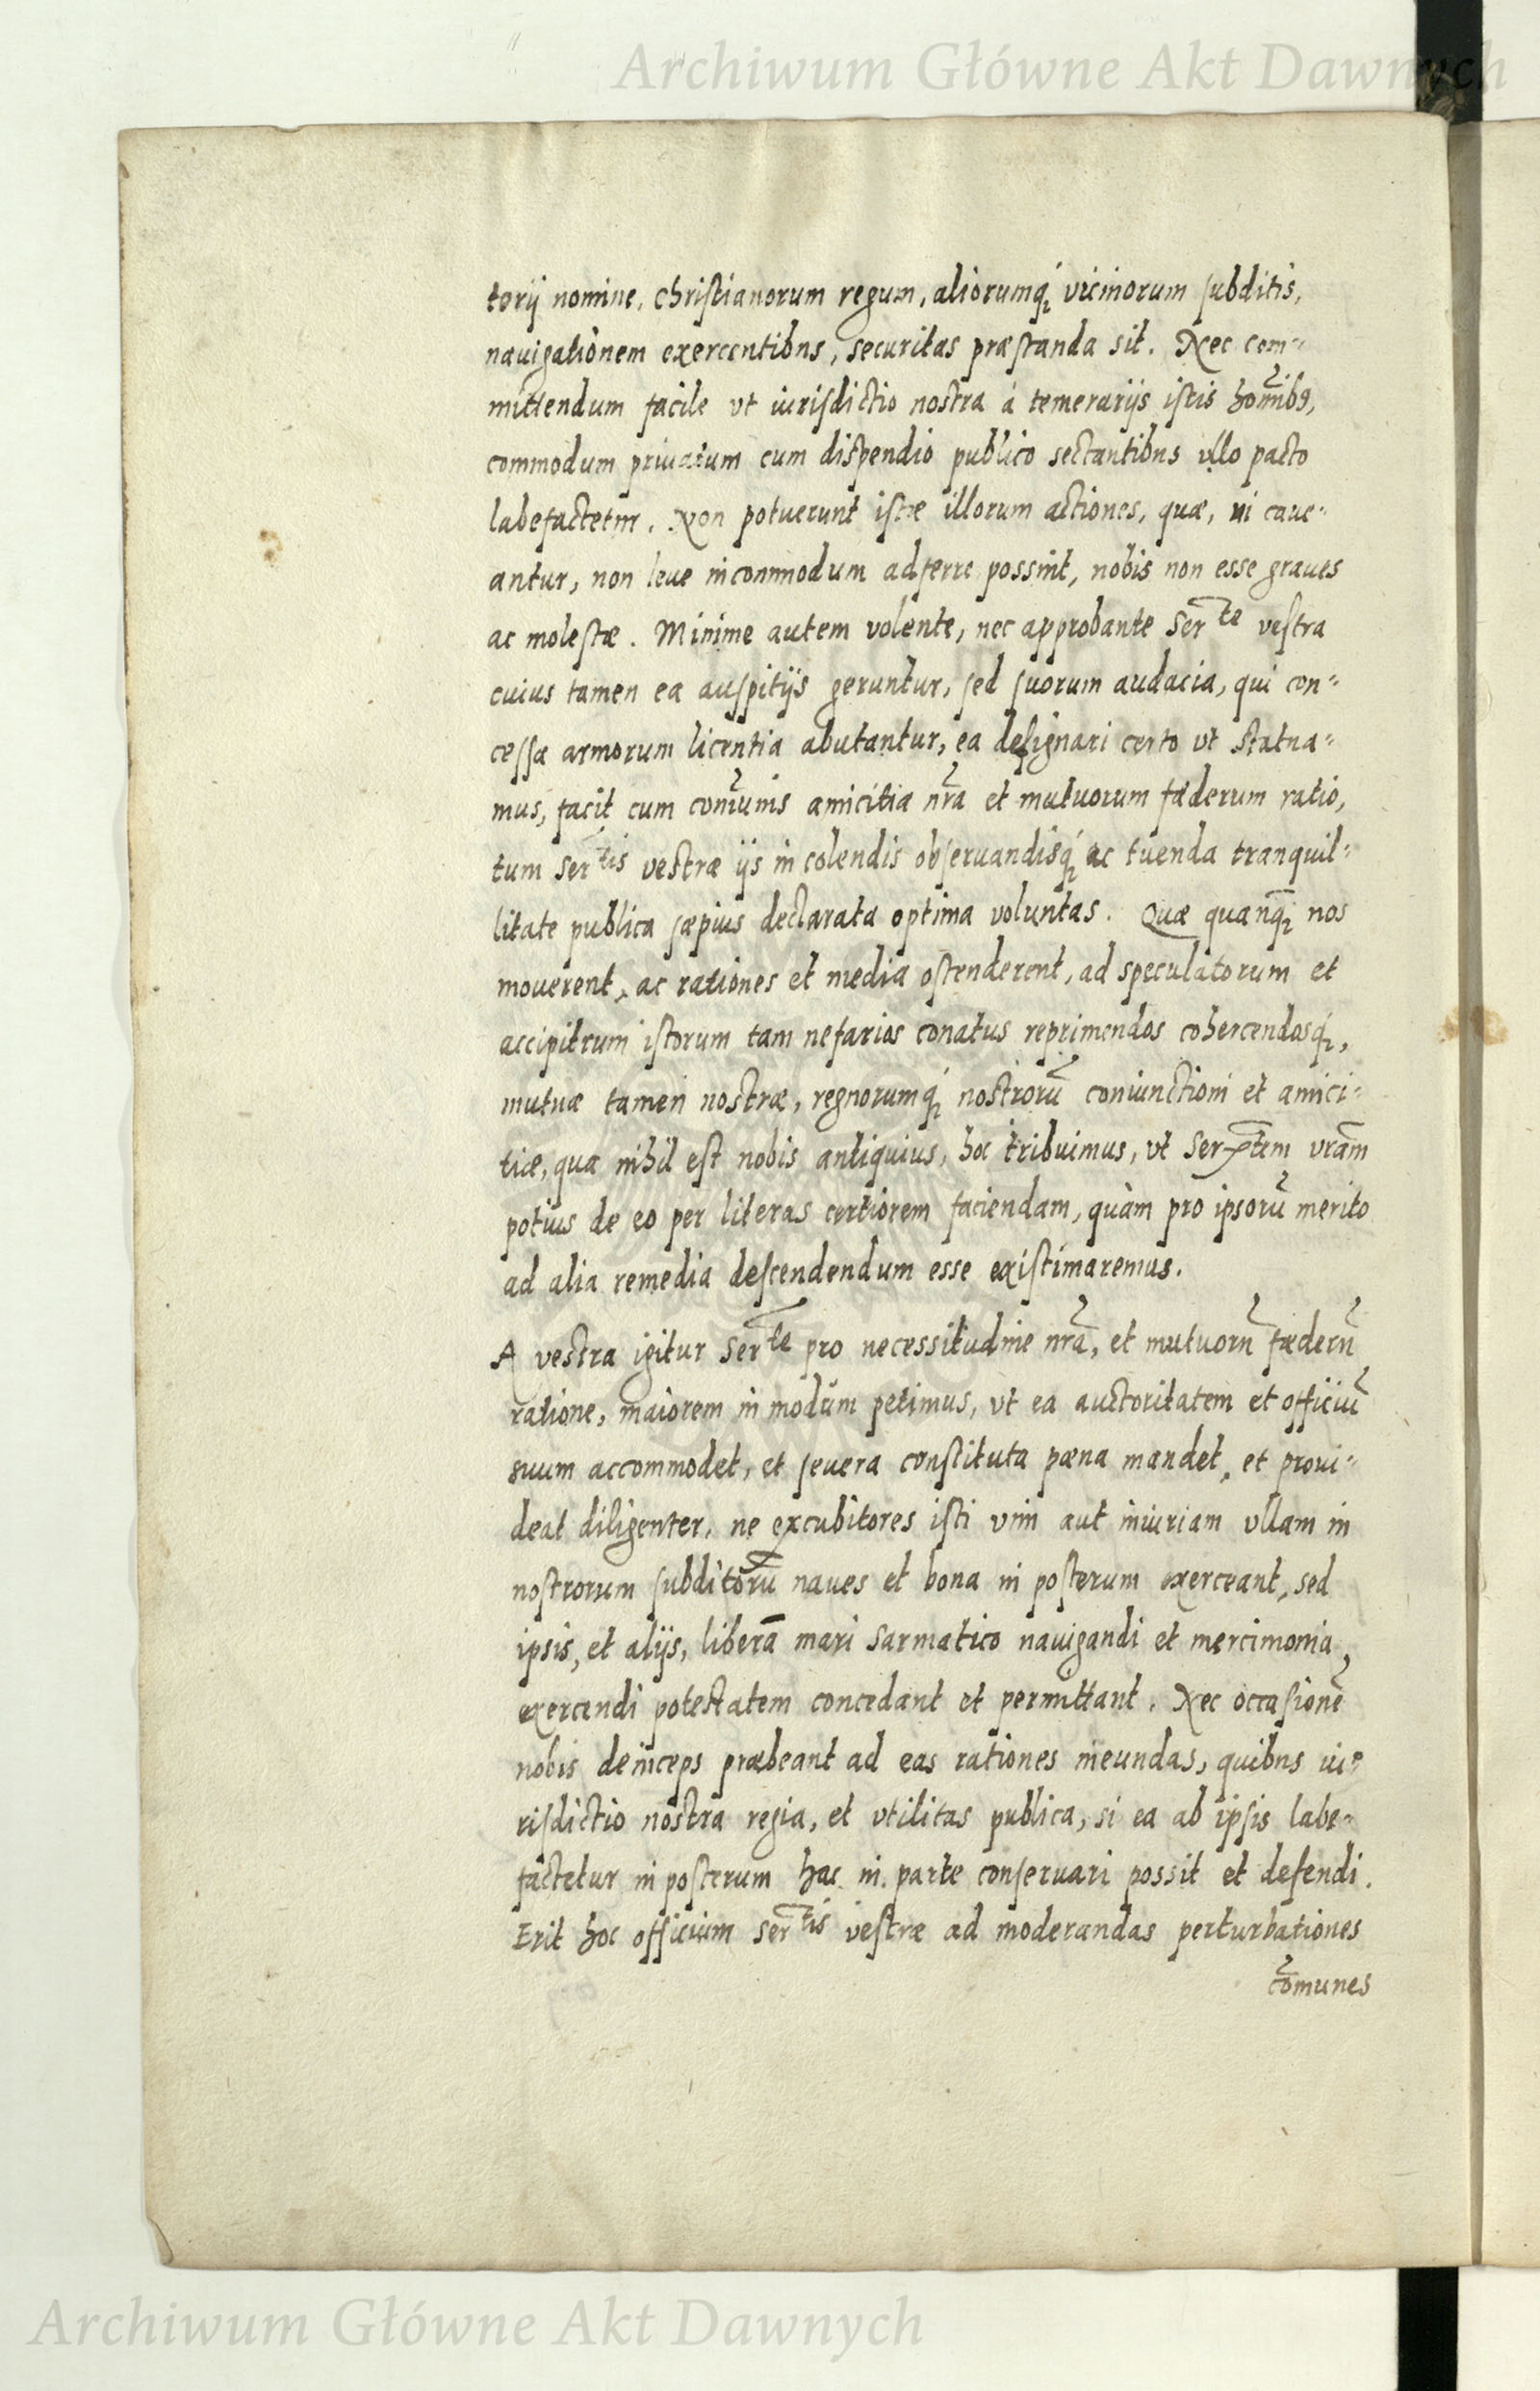 Archiwum Główne Akt Dawnych
terij nomine, christianorum regum, aliorumq́; vicinorum subditis,
nauigationem exercentibus, securitas præstanda sit. Nec com-
mittendum facile vt iurisdictio nostra à temerarijs istis hom̃ibꝯ,
commodum priuatum cum dispendio publico sectantibus vllo pacto
labefactetur. Non potuerunt istæ illorum actiones, quæ, ni caue-
antur, non leue incommodum adferre possint, nobis non esse graues
ac molestæ. Minime autem volente, nec approbante Ser^te vestra
cuius tamen ea auspitijs geruntur, sed suorum audacia, qui con-
cessæ armorum licentia abutantur, ea designari certo vt statua-
mus, facit cum com̃unis amicitia nr̃a et mutuorum fæderum ratio,
tum Ser^tis vestræ ijs in colendis obseruandisq́; ac tuenda tranquil-
litate publica sæpius declarata optima voluntas. Quæ quanq̃; nos
mouerent, ac rationes et media ostenderent, ad speculatorum et
accipitrum istorum tam nefarios conatus reprimendos cohercendosq́;,
mutuæ tamen nostræ, regnorumq́; nostrorũ coniunctioni et amici-
tiæ, qua nihil est nobis antiquius, hoc tribuimus, vt Ser^tem vrãm
potius de eo per literas certiorem faciendam, quàm pro ipsorũ merito
ad alia remedia descendendum esse existimaremus.
A vestra igitur Ser^te pro necessitudine nrã, et mutuorũ fæderũ
ratione, maiorem in modum petimus, vt ea auctoritatem et officiũ
suum accommodet, et seuera constituta pæna mandet, et proui-
deat diligenter, ne excubitores isti vim aut iniuriam vllam in
nostrorum subditorũ naues et bona in posterum exerceant, sed
ipsis, et alijs, liberã mari Sarmatico nauigandi et mercimonia
exercendi potestatem concedant et permittant. Nec occasionẽ
nobis deinceps præbeant ad eas rationes ineundas, quibus iu-
risdictio nostra regia, et vtilitas publica, si ea ab ipsis labe-
factetur in posterum hac in parte conseruari possit et defendi.
Erit hoc officium Ser^tis vestræ ad moderandas perturbationes
cõmunes
Archiwum Główne Akt Dawnych